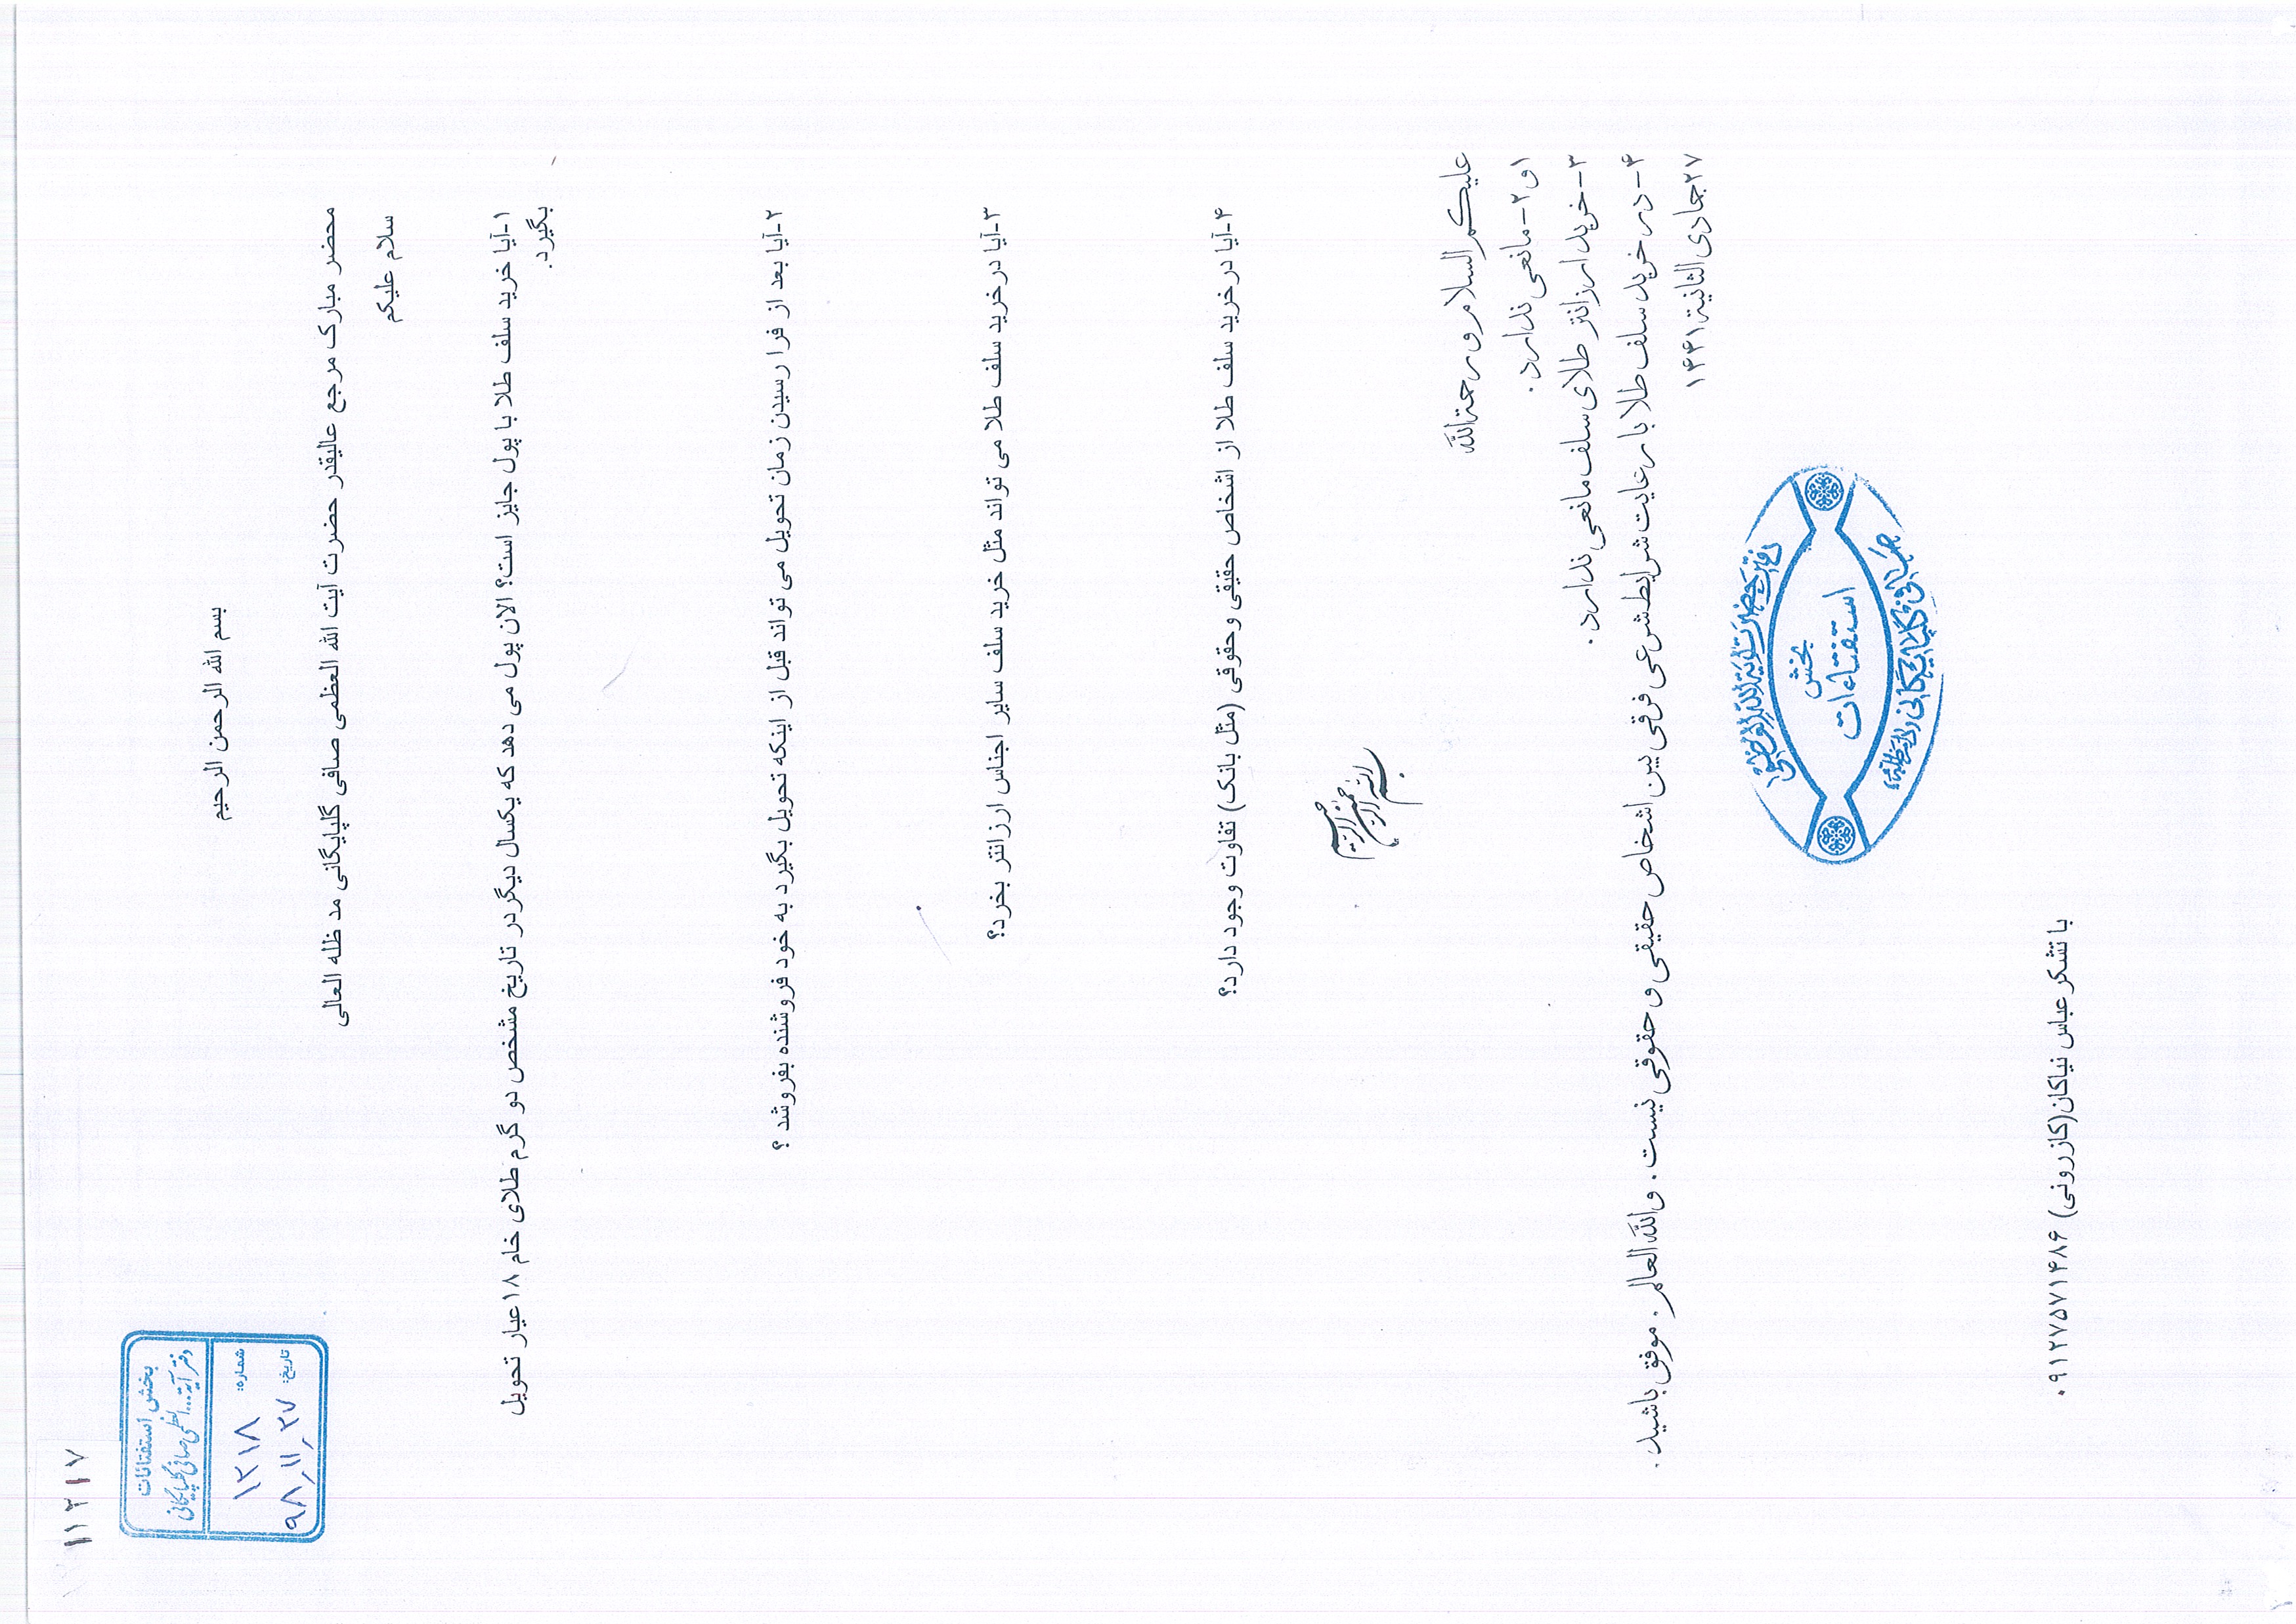 ۱۱۲۱۷
بخش استفتائات
دفتر آیة... العظمی صافی گلپایگانی
شماره: ۱۲۱۸
تاریخ: ۹۸٫۱۱٫۲۷
بسم الله الرحمن الرحیم
محضر مبارک مرجع عالیقدر حضرت آیت الله العظمی صافی گلپایگانی مد ظله العالی
سلام علیکم
۱-آیا خرید سلف طلا با پول جایز است؟ الان پول می دهد که یکسال دیگر در تاریخ مشخص دو گرم طلای خام ۱۸عیار تحویل
بگیرد.
۲-آیا بعد از فرا رسیدن زمان تحویل می تواند قبل از اینکه تحویل بگیرد به خود فروشنده بفروشد ؟
۳-آیا در خرید سلف طلا می تواند مثل خرید سلف سایر اجناس ارزانتر بخرد؟
۴-آیا در خرید سلف طلا از اشخاص حقیقی وحقوقی (مثل بانک) تفاوت وجود دارد؟
بسم الله الرحمن الرحیم
علیکم السلام و رحمة الله
۱و۲- مانعی ندارد.
۳- خرید ارزانتر طلای سلف مانعی ندارد.
۴- در خرید سلف طلا با رعایت شرایط شرعی فرقی بین اشخاص حقیقی و حقوقی نیست. والله العالم. موفق باشید.
۲۷جمادی الثانیة ۱۴۴۱
دفتر حضرت آیة الله العظمی
بخش
استفتاءات
صافی گلپایگانی مدظله
با تشکر عباس نیاکان(کازرونی) ۰۹۱۲۷۵۷۱۴۸۶